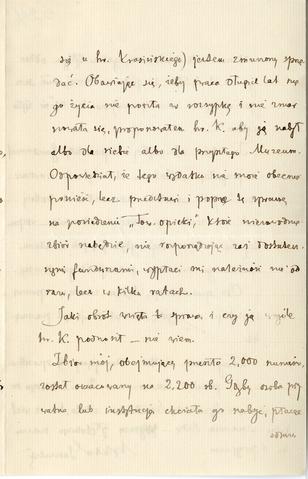 się u hr. Krasińskiego) jestem zmuszony sprze
dać. Obawiając się, żeby praca długich lat me
go życia nie poszła w rozsypkę i nie zmar
nowała się, proponowałem hr. K. aby ją nabył
albo dla siebie albo dla przyszłego Muzeum.
Odpowiedział, że tego wydatku nie może obecnie
ponieść, lecz przedstawi i poprze tę sprawę
na posiedzeniu „Tow. opieki," które niezawodnie
zbiór nabędzie, nie rozporządzając zaś dostatecz
nymi funduszami, wypłaci mi należność nie od
razu, lecz w kilku ratach.
Jaki obrót wzięła ta sprawa i czy ją wogóle
hr. K. podnosił – nie wiem.
Zbiór mój, obejmujący przeszło 2,000 numerów,
został oszacowany na 2,200 rb. Gdyby osoba pry
watna lub instytucja chciała go nabyć, płacąc